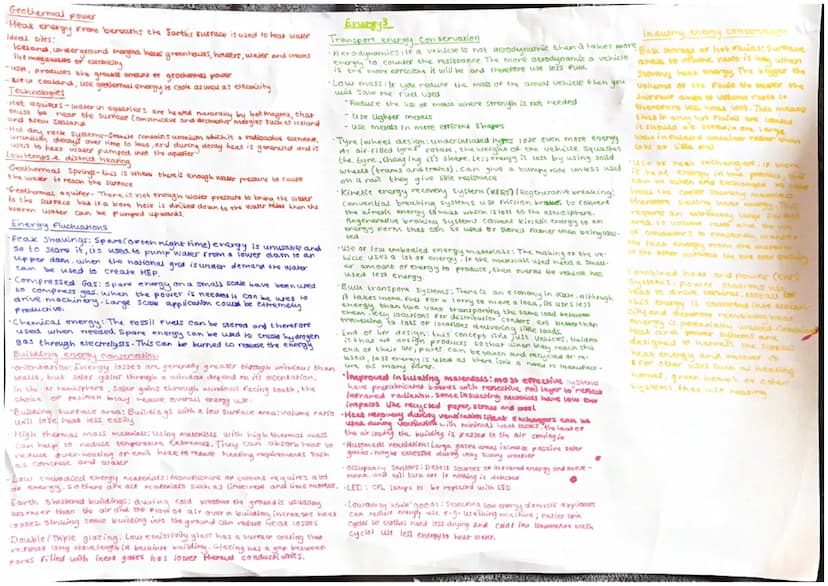 Geothermal power
- Heat energy from beneath the Earth's surface is used to heat water
Ideal sites:
- Iceland, underground magma heats greenhouses, houses, water and
- USA, produces the greatest amount of geothermal power
- New Zealand, use geothermal energy to cook as well as electricity
Technologies
- Hot aquifers - water in aquifers are heated naturally by hot magma, that
must be near the surface (constructive and destructive margins) such as Iceland
and New Zealand
- Hot dry rock systems - Granite contains uranium which is a radioactive element,
uranium decays over time to lead, and during decay heat is generated and is
used to heat water pumped into the aquifer
Low temp & district heating
- Geothermal springs - this is where there is enough water pressure to cause
the water to reach the surface
- Geothermal aquifer - There is not enough water pressure to bring the water
to the surface but if a bore hole is drilled down to the water table then the
warm water can be pumped upwards.
Energy fluctuations
- Peak shavings: Spare (often night time) energy is unusable and
so to store it, its used to pump water from a lower dam to an
upper dam. When the national grid is under demand the water
can be used to create HEP.
- Compressed Gas: Spare energy on a small scale have been used
to compress gas. When the power is needed it can be used to
drive machinery. Large scale application could be extremely
productive.
- Chemical energy: The fossil fuels can be stored and therefore
used when needed. Spare energy can be used to create hydrogen
gas through electrolysis. This can be burned to release the energy
Building energy conservation
- orientation: Energy losses are generally greater through windows than
walls, but solar gains through a window depend on its orientation.
In the N hemisphere, solar gains through windows facing south, the
choice of position may reduce overall energy use.
- Building surface area: Buildings with a low surface area: volume ratio
will lose heat less easily
- High thermal mass materials: Using materials with high thermal mass
can help to reduce temperature extremes. They can absorb heat to
reduce over-heating or emit heat to reduce heating requirements such
as concrete and water
- Low embodied energy materials: Manufacture of cement requires a lot
of energy, so there are alt materials such as limecrete and lime mortar.
- Earth sheltered buildings: during cold weather the ground is usually
warmer than the air and the flow of air over a building increases heat
losses. Sinking some building into the ground can reduce heat losses
- Double/Triple glazing: Low emissivity glass has a surface coating that
long wavelength IR back into building. Glazing has a gap between
panes filled with inert gases has lower thermal conductivities.
Energy 3
Transport energy conservation
- Aerodynamics: If a vehicle is not aerodynamic then it takes more
energy to counter the resistance. The more aerodynamic a vehicle
is the more efficient it will be and therefore use less fuel
- Low mass: If you reduce the mass of the actual vehicle then you
will save the fuel used
- Reduce the use of mass where strength is not needed
- Use lighter metals
- Use metals in more efficient shapes
- Tyre/wheel design: underinflated tyres lose even more energy
As air-filled tyres rotate, the weight of the vehicle squashes
the tyre, changing it's shape. Less energy is lost by using solid
wheels (trams and trains), can give a bumpy ride unless used
on a rail they give less resistance
- Kinetic energy recovery system (KERS) / Regenerative breaking:
conventional breaking systems use friction brakes to convert
the kinetic energy to heat which is lost to the atmosphere.
Regenerative breaking systems convert kinetic energy to an
energy form that can be used or stored rather than being wasted
- use of low embodied energy materials: The making of the vehicle
uses a lot of energy. If the materials used need a smaller
amount of energy to produce, then overall the vehicle has
used less energy.
- Bulk transport systems: There is an economy in scale. Although
it takes more fuel for a lorry to move a load, its uses less
energy than two vans transporting the same load between
them. Key locations for distribution centers are better than
travelling to lots of locations delivering little loads.
- End of life design: this concept isn't just vehicles, builders
its how we design products so that when they reach the
end of their life, parts can be taken and recycled or re-
used, less energy is used as there isn't a need to manufacture
as many parts.
- Improved insulating materials: most effective systems
have polyurethane boards with reflective foil layer to reflect
infrared radiation. Some insulating materials have low env
impacts like recycled paper, straw and wool
- Heat recovery during ventilation: Heat exchangers can be
used during ventilation with minimal heat losses. The heat of
the air leaving the building is passed to the air coming in
- Automatic ventilation: Large glass areas increase passive solar
gains, maybe excessive during very sunny weather
- occupancy sensors: Detect sources of infrared energy and movement,
and will turn off if nothing is detected
- LED: CFL lamps to be replaced with LED
- Low energy 'white' goods: Selecting low energy domestic appliances
can reduce energy use e.g. washing machine; faster spin
cycles so clothes need less drying and cold/ low temperature wash
cycles use less energy to heat water.
Industry energy conservation
Bulk storage of hot fluids: Surface
area to volume ratio is key when
storing heat energy. The bigger the
volume of the fluid the lower the
surface area to volume ratio is
therefore less heat lost. This means
that if any hot fluids are stored
it should be within one large
insulated container rather than
lots of little ones
Use of heat exchangers: If there
is heat energy in one process, this
can be used and exchanged to
Combined heat and power (CHP)
Systems: Power stations use
heat to drive turbines, except for
this energy is converted into electricity